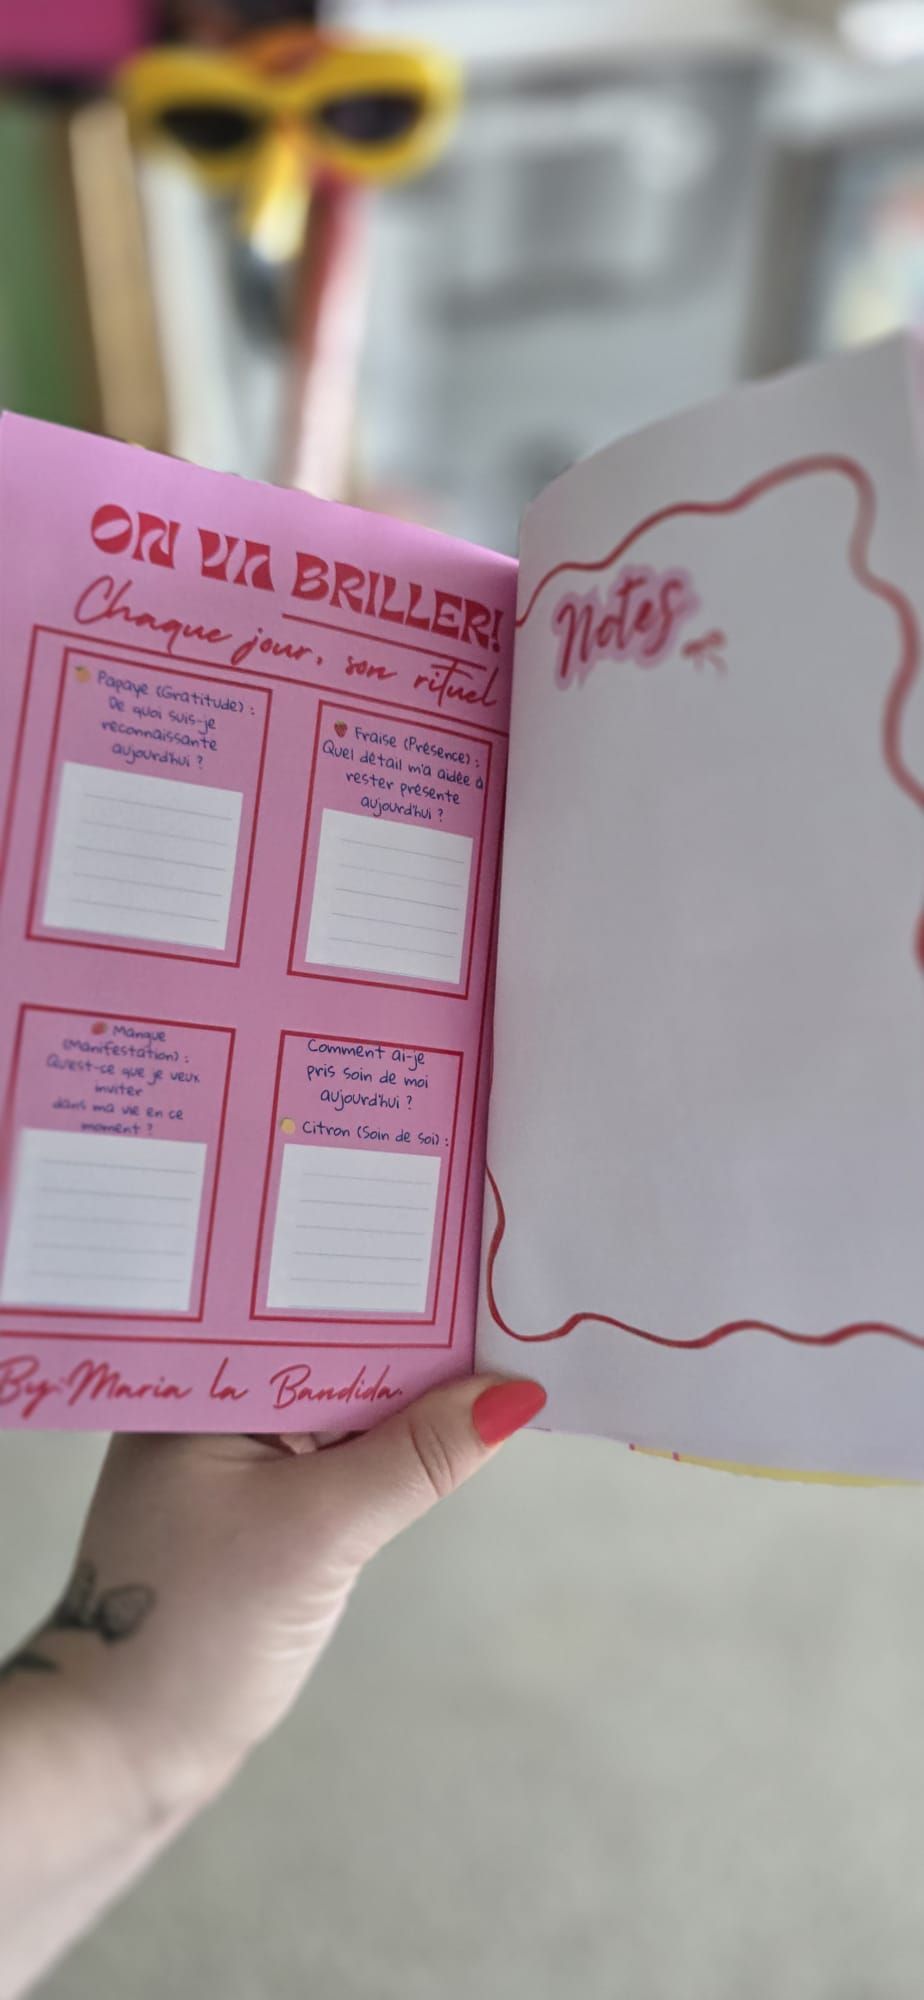 ON VA BRILLER!
Chaque jour, son rituel
Papaye (Gratitude) :
De quoi suis-je
reconnaissante
aujourd'hui ?
Fraise (Présence) :
Quel détail m'a aidée à
rester présente
aujourd'hui ?
Mangue
(Manifestation) :
Qu'est-ce que je veux
inviter
dans ma vie en ce
moment ?
Comment ai-je
pris soin de moi
aujourd'hui ?
Citron (Soin de soi) :
By: Maria la Bandida
Notes